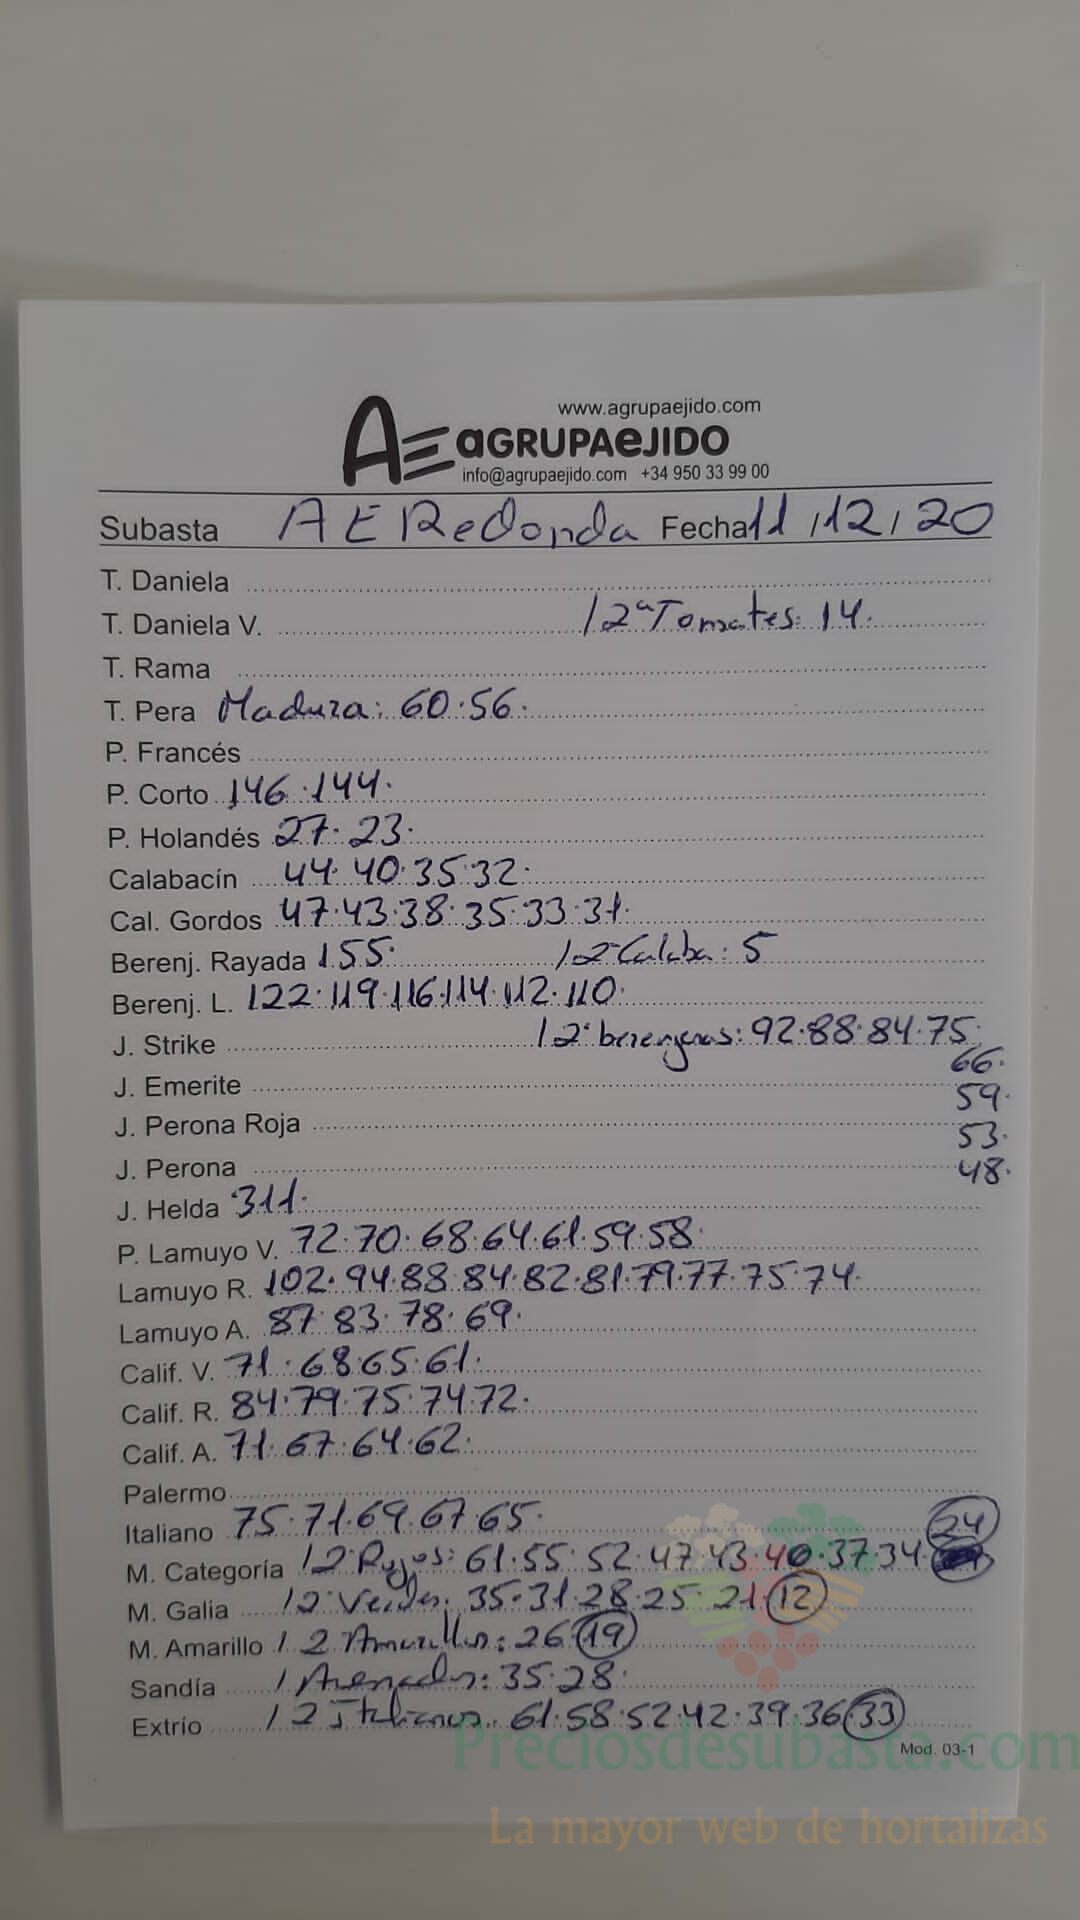 www.agrupaejido.com
AE aGRUPAeJIDO
info@agrupaejido.com +34 950 33 99 00
Subasta AE Redonda Fecha 11/12/20
T. Daniela
T. Daniela V. / 2ª Tomates: 14.
T. Rama
T. Pera Madura: 60.56.
P. Francés
P. Corto 146.144.
P. Holandés 27.23.
Calabacín 44.40.35.32.
Cal. Gordos 47.43.38.35.33.31.
Berenj. Rayada 155. / 2ª Calaba: 5
Berenj. L. 122.119.116.114.112.110.
J. Strike / 2ª berenjenas: 92.88.84.75.
66.
J. Emerite
59.
J. Perona Roja
53.
J. Perona
48.
J. Helda 311.
P. Lamuyo V. 72.70.68.64.61.59.58.
Lamuyo R. 102.94.88.84.82.81.79.77.75.74.
Lamuyo A. 87.83.78.69.
Calif. V. 71.68.65.61.
Calif. R. 84.79.75.74.72.
Calif. A. 71.67.64.62.
Palermo
Italiano 75.71.69.67.65.
24
M. Categoría / 2ª Rojos: 61.55.52.47.43.40.37.34.
M. Galia / 2ª Verdes: 35.31.28.25.21.12
M. Amarillo / 2ª Amarillos: 26.19
Sandía / Asenados: 35.28.
Extrío / 2ª Italianos: 61.58.52.42.39.36.33
Mod. 03-1
Preciosdesubasta.com
La mayor web de hortalizas